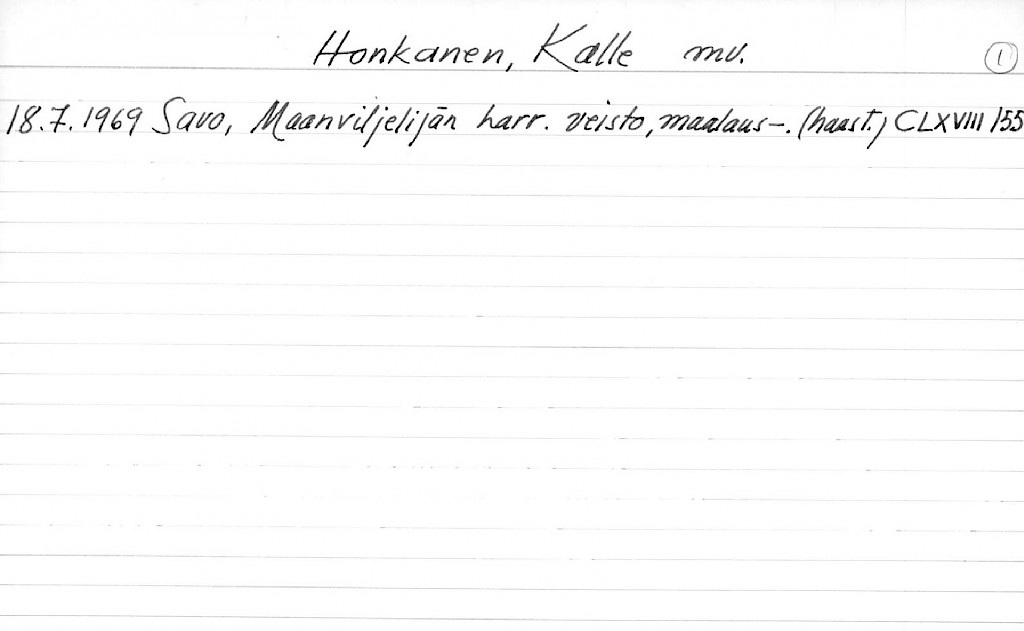 Honkanen, Kalle mv. 1
18.7.1969 Savo, Maanviljelijän harr. veisto, maalaus-. (haast.) CLXVIII /55